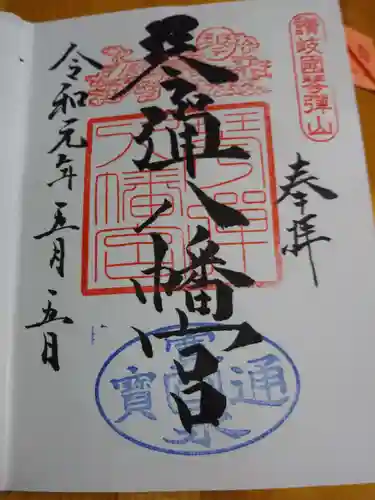 讃岐國琴弾山
奉拝
琴弾八幡宮
琴弾
八幡宮
令和元年五月五日